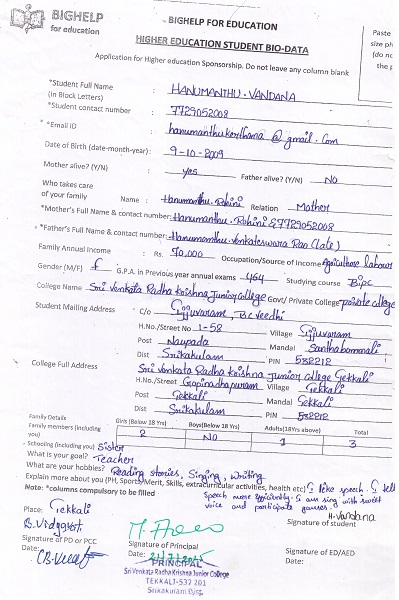 BIGHELP
for education
BIGHELP FOR EDUCATION
HIGHER EDUCATION STUDENT BIO-DATA
Paste
size ph
(do no
the p
Application for Higher education Sponsorship. Do not leave any column blank
*Student Full Name : HANUMANTHU - VANDANA
(in Block Letters)
*Student contact number : 7729052008
*Email ID : hanumanthukerthana @ gmail . com
Date of Birth (date-month-year): 9-10-2009
Mother alive? (Y/N) : yes Father alive? (Y/N) NO
Who takes care
of your family Name : Hanumanthu. Rohini Relation Mother
*Mother's Full Name & contact number: Hanumanthu. Rohini & 7729052008
*Father's Full Name & contact number: Hanumanthu. Venkateswara Rao (Late)
Family Annual Income : Rs 70,000 Occupation/Source of Income Agriculture labour
Gender (M/F) F G.P.A. in Previous year annual exams 464 Studying course Bipc
College Name Sri Venkata Radha Krishna Junior College Govt/ Private College private college
Student Mailing Address : C/o Sijjuvaram, B.C veedhi
H.No./Street No 1-58 Village Sijjuvaram
Post Naupada Mandal Santhabommali
Dist Srikakulam PIN 532212
College Full Address Sri Venkata Radha Krishna Junior College Tekkali
H.No./Street Gopinadhapuram Village Tekkali
Post Tekkali Mandal Tekkali
Dist Srikakulam PIN 532212
Family Details Girls (Below 18 Yrs) Boys(Below 18 Yrs) Adults(18Yrs above) Total
Family members (including you) 2 NO 1 3
- Schooling (including you) Sister
- What is your goal? Teacher
- What are your hobbies? Reading stories, Singing, writing
- Explain more about you (PH, Sports/Merit, Skills, extracurricular activities, health etc) I like speech. I tell
Speech more efficiently. I am sing with sweet
voice and participate games.
Note: *columns compulsory to be filled
Place: Tekkali
H. Vandana
Signature of student
Signature of PD or PCC
Signature of Principal
PRINCIPAL
Sri Venkata Radha Krishna Junior College
TEKKALI-532 201
Srikakulam Dist.
Signature of ED/AED
Date:
Date: